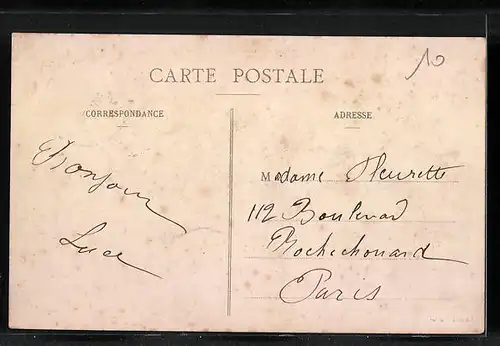 10
CARTE POSTALE
CORRESPONDANCE
ADRESSE
Bonjour
Madame Fleurette
112 Boulevard
Rochechouard
Paris